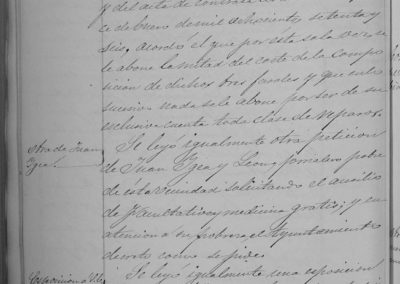 y del acta de contrata
ce de Enero de mil ochocientos setenta y
seis, acordó el que por esta sola vez, se
le abone la mitad del coste de la compo
sición de dichos tres faroles y que en lo
sucesivo nada se le abone por ser de su
exclusiva cuenta toda clase de reparos.
Otra de Juan
Ygea
Se leyó igualmente otra peticion
de Juan Ygea y Leon, jornalero pobre
de esta vecindad solicitando el auxilio
de facultativos y medicina gratis; y en
atencion a su pobreza el Ayuntamiento
decretó como se pide.
Se leyó igualmente una exposicion